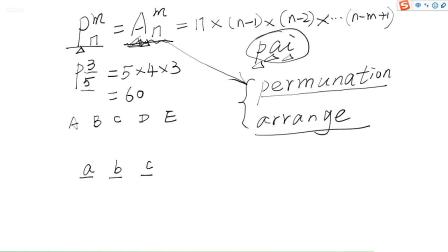 P_n^m = A_n^m = n × (n-1) × (n-2) × ⋯ (n-m+1)
pai
P_5^3 = 5×4×3
= 60
permunation
arrange
A B C D E
a b c